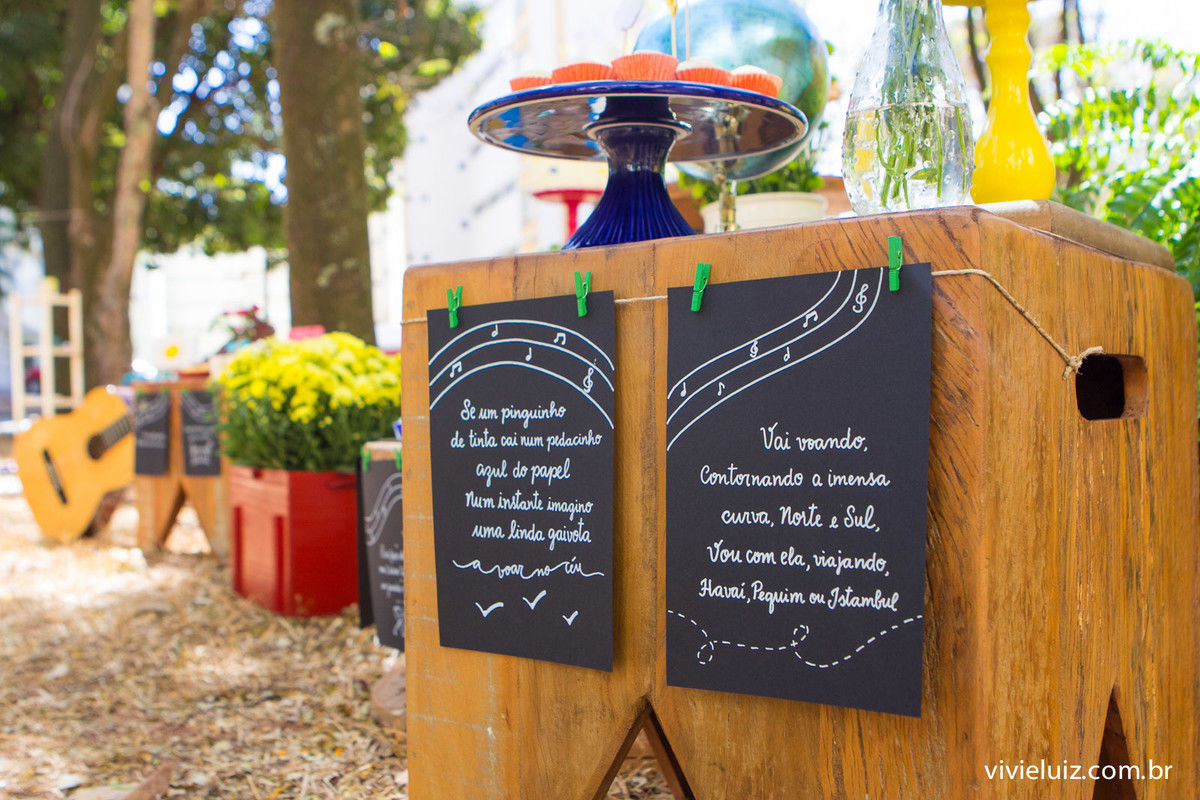 Se um pinguinho
de tinta cai num pedacinho
azul do papel
Num instante imagino
uma linda gaivota
a voar no céu
Vai voando,
Contornando a imensa
curva, Norte e Sul,
Vou com ela, viajando,
Havaí, Pequim ou Istambul
vivieluiz.com.br